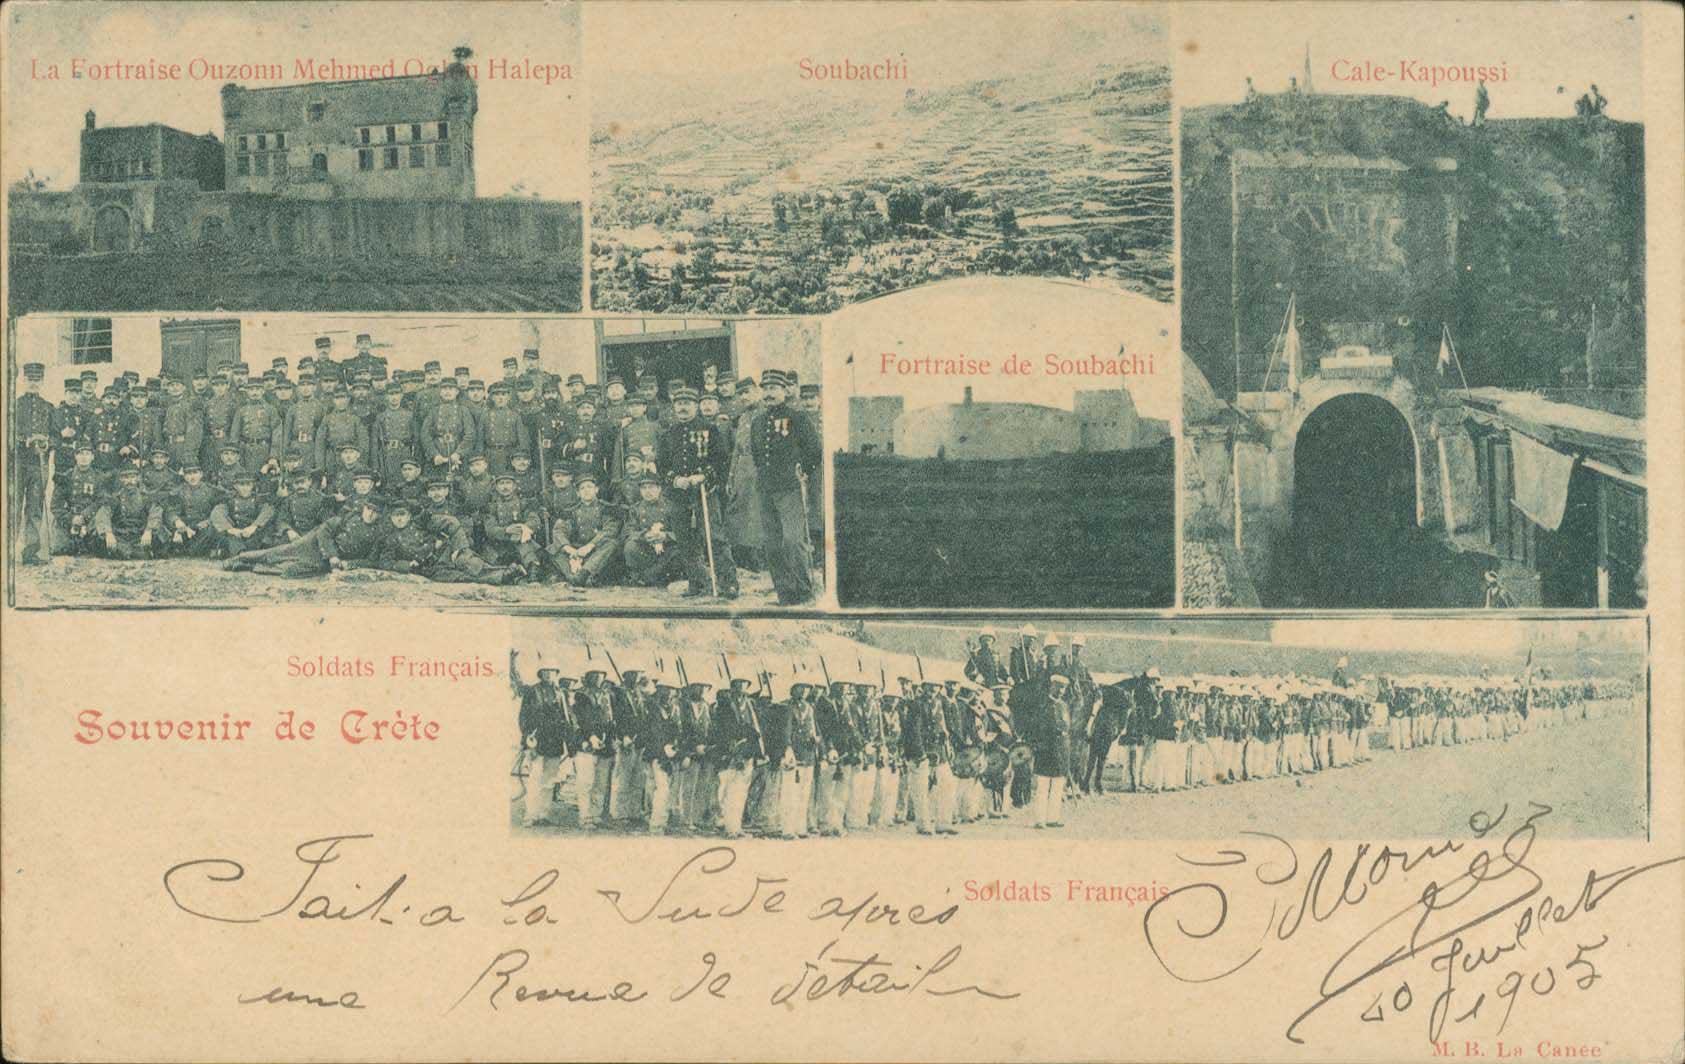 La Fortraise Ouzonn Mehmed Oglou Halepa
Soubachi
Cale-Kapoussi
Fortraise de Soubachi
Soldats Français
Souvenir de Crète
Soldats Français
Fait a la Sude après
une Revue de détail
Juillet
1905
M. B. La Canée